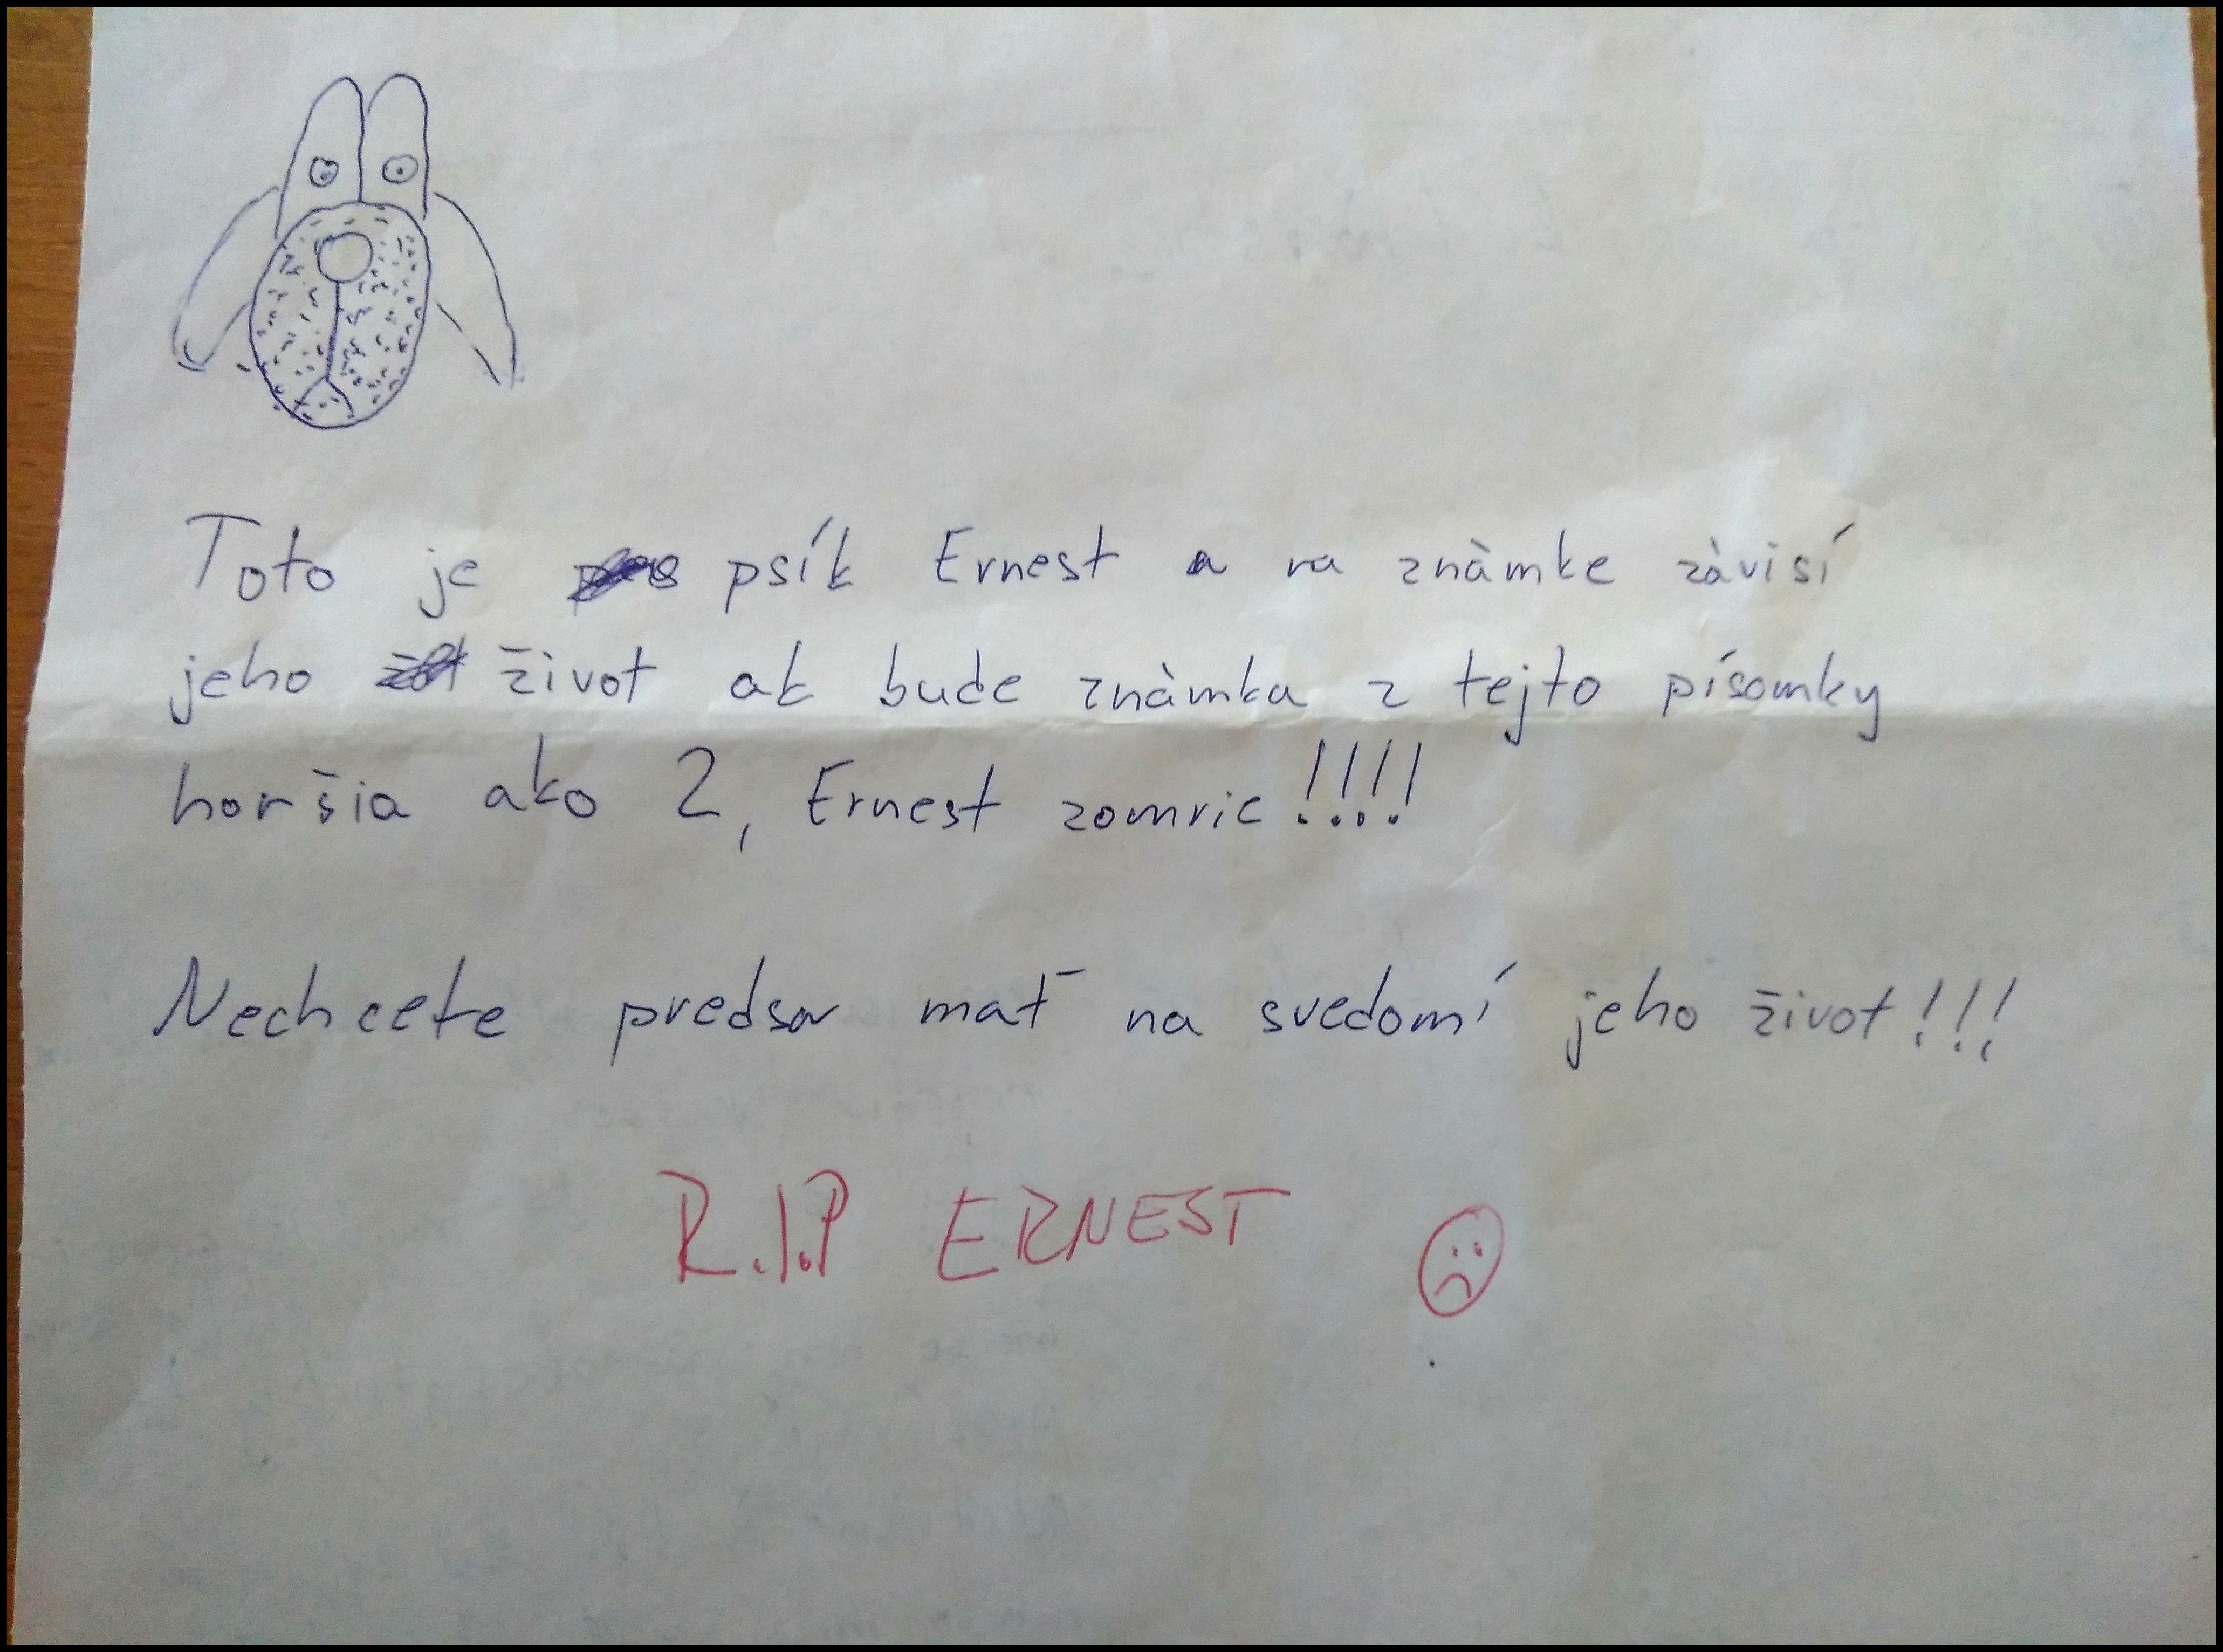 Toto je psík Ernest a na známke závisí
jeho život ak bude známka z tejto písomky
horšia ako 2, Ernest zomrie!!!!
Nechcete predsa mať na svedomí jeho život!!!
R.I.P ERNEST